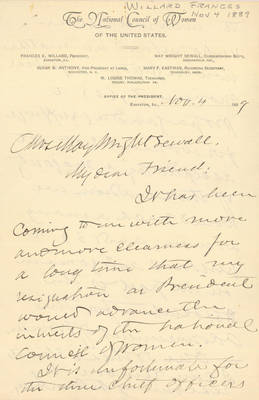 WILLARD FRANCES
NOV 4 1889
The National Council of Women
OF THE UNITED STATES.
FRANCES E. WILLARD, PRESIDENT,
EVANSTON, ILL.
MAY WRIGHT SEWALL, CORRESPONDING SEC'Y,
INDIANAPOLIS, IND.
SUSAN B. ANTHONY, VICE-PRESIDENT AT LARGE,
ROCHESTER, N. Y.
MARY F. EASTMAN, RECORDING SECRETARY,
TEWKSBURY, MASS.
M. LOUISE THOMAS, TREASURER,
OFFICE OF THE PRESIDENT
EVANSTON, ILL., Nov. 4 1889
Mrs. May Wright Sewall,
My dear Friend:
It has been
coming to me with more
and more clearness for
a long time that my
resignation as President
would advance the
interests of the National
Council of Women.
It is unfortunate for
the three chief officers